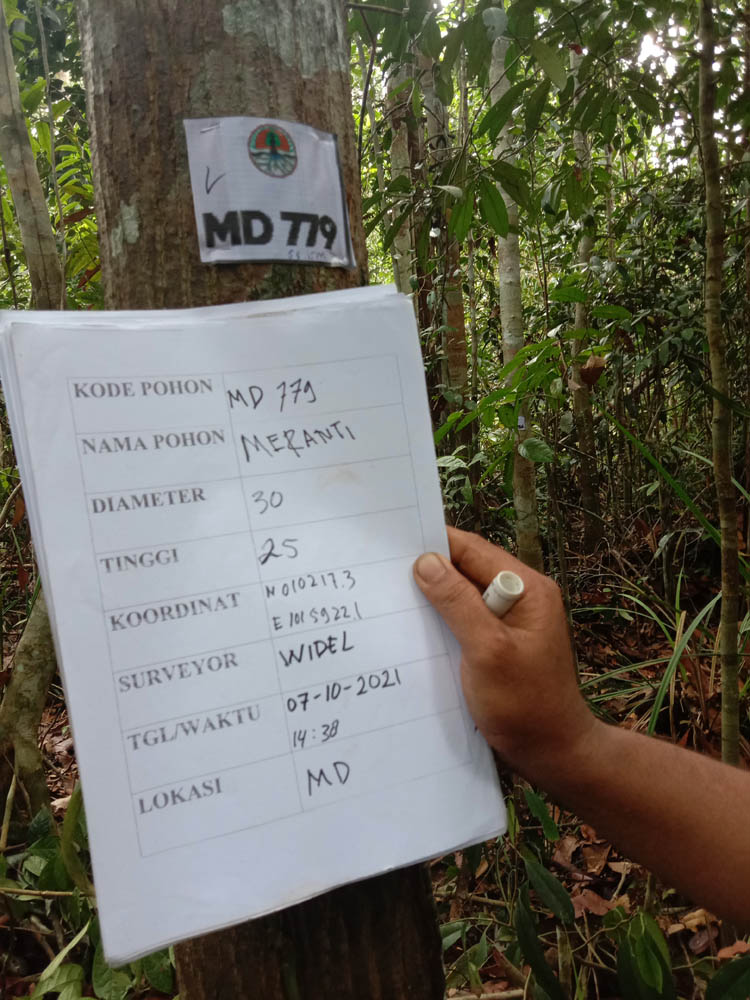 MD 779
KODE POHON MD 779
NAMA POHON MERANTI
DIAMETER 30
TINGGI 25
KOORDINAT N 010217.3
E 1015922.1
SURVEYOR WIDEL
TGL/WAKTU 07-10-2021
14:38
LOKASI MD